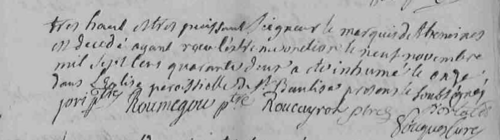 tres haut et tres puissant seigneur le marquis de themines
est decedé ayant recu l'extreme onction le neuf novembre
mil sept cens quarante deux a eté inhumé le onze
dans l'eglise paroissielle de st Bauliza presens les soussignés
Roumegou ptre Roucayrou ptre
curé